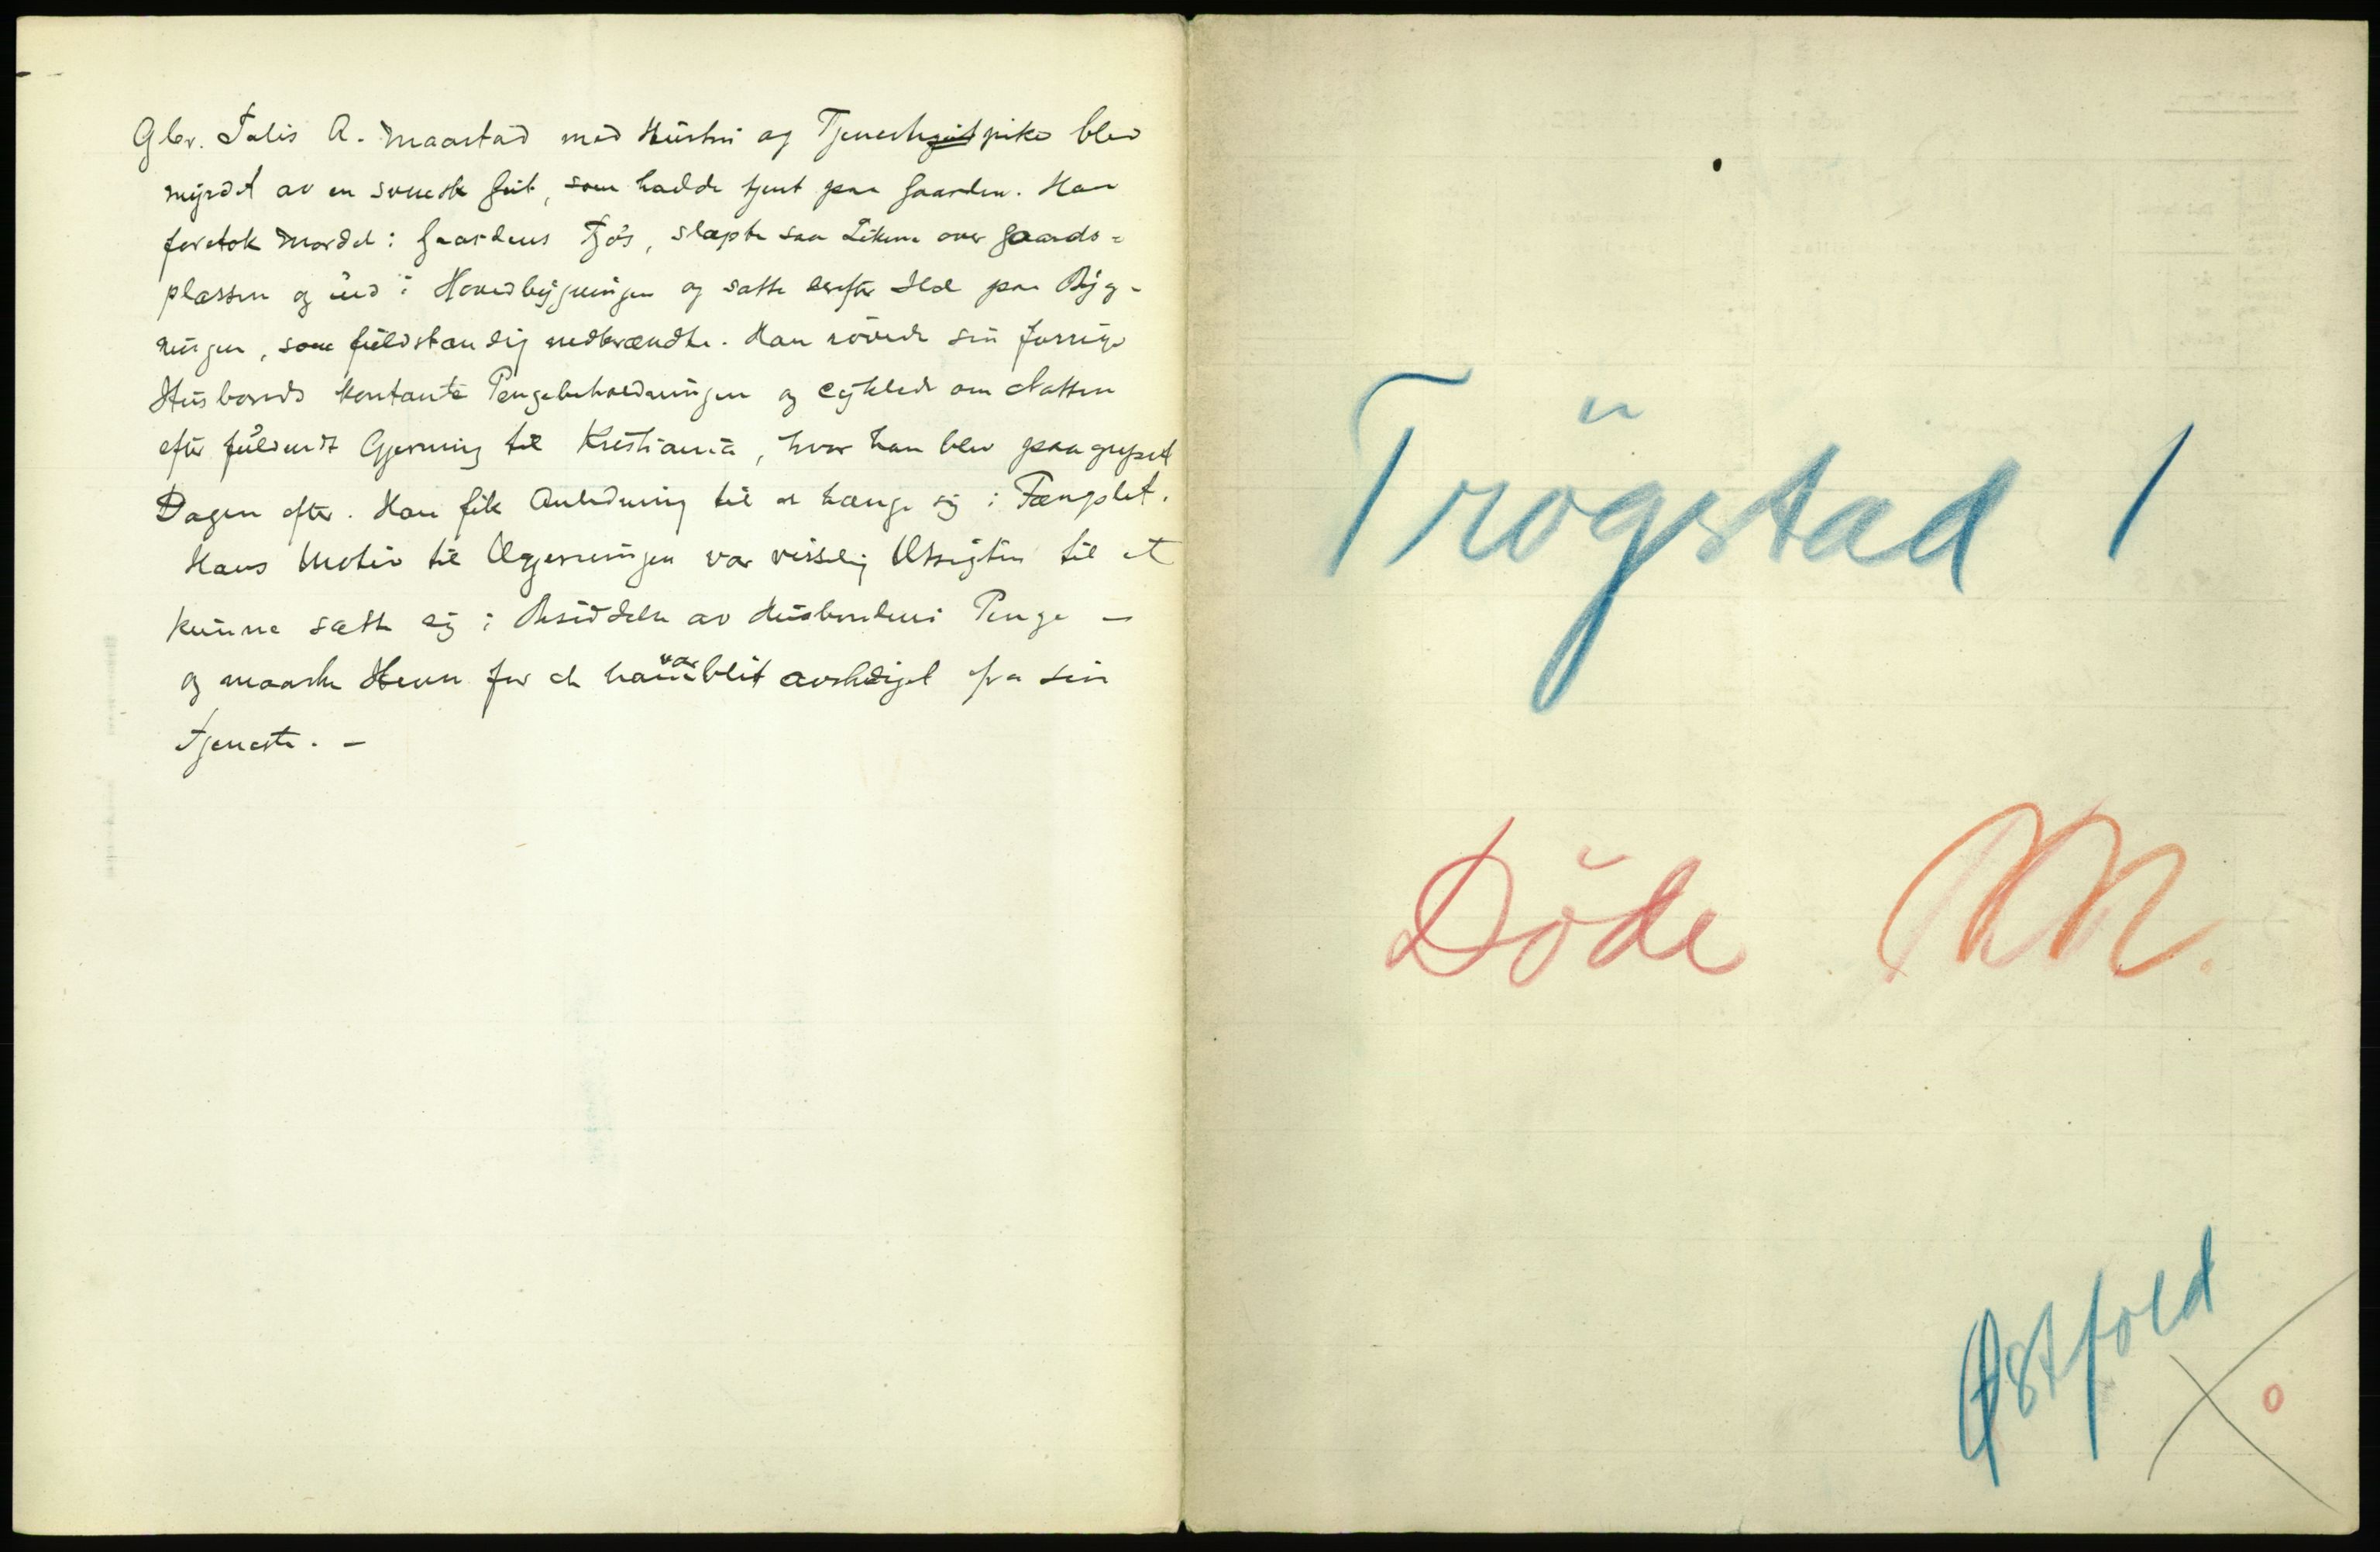 Gbr. Julis A. Maarstad med Hustru og Tjenestegutpike blev
myrdet av en svensk Gut, som hadde tjent paa Gaarden. Han
foretok Mordet i Gaardens Fjös, slæpte saa Likene over Gaards-
plassen og ind i Hovedbygningen og satte derefter Ild paa Byg-
ningen, som fuldstændig nedbrændte. Han rövede sin forrige
Husbonds kontante Pengebeholdningen og cyklede om Natten
efter fuldendt Gjerning til Kristiania, hvor han blev paagrepet
Dagen efter. Han fik Anledning til at hænge sig i Fængslet.
Hans Motiv til Ugjerningen var visselig Utsigten til at
kunne sætte sig i Besiddelse av Husbondens Penge —
og maaske Hevn for at han var blit avskediget fra sin
Tjeneste. —
Trögstad 1
Döde M.
Østfold
0